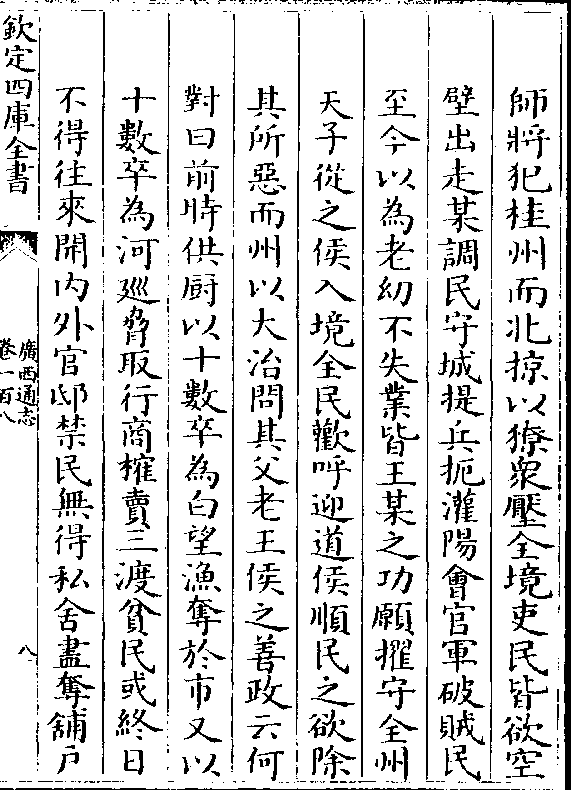 師將犯桂州而北掠以獠衆壓全境吏民皆欲空
壁出走某調民守城提兵扼灌陽會官軍破賊民
至今以為老幼不失業皆王某之功願擢守全州
天子從之侯入境全民歡呼迎道侯順民之欲除
其所惡而州以大治問其父老王侯之善政云何
對曰前時供厨以十數卒為白望漁奪於市又以
十數卒為河廵脅取行商榷賣三渡貧民或終日
不得往來開内外官邸禁民無得私舍盡奪舖户
欽定四庫全書
廣西通志
卷一百八
八